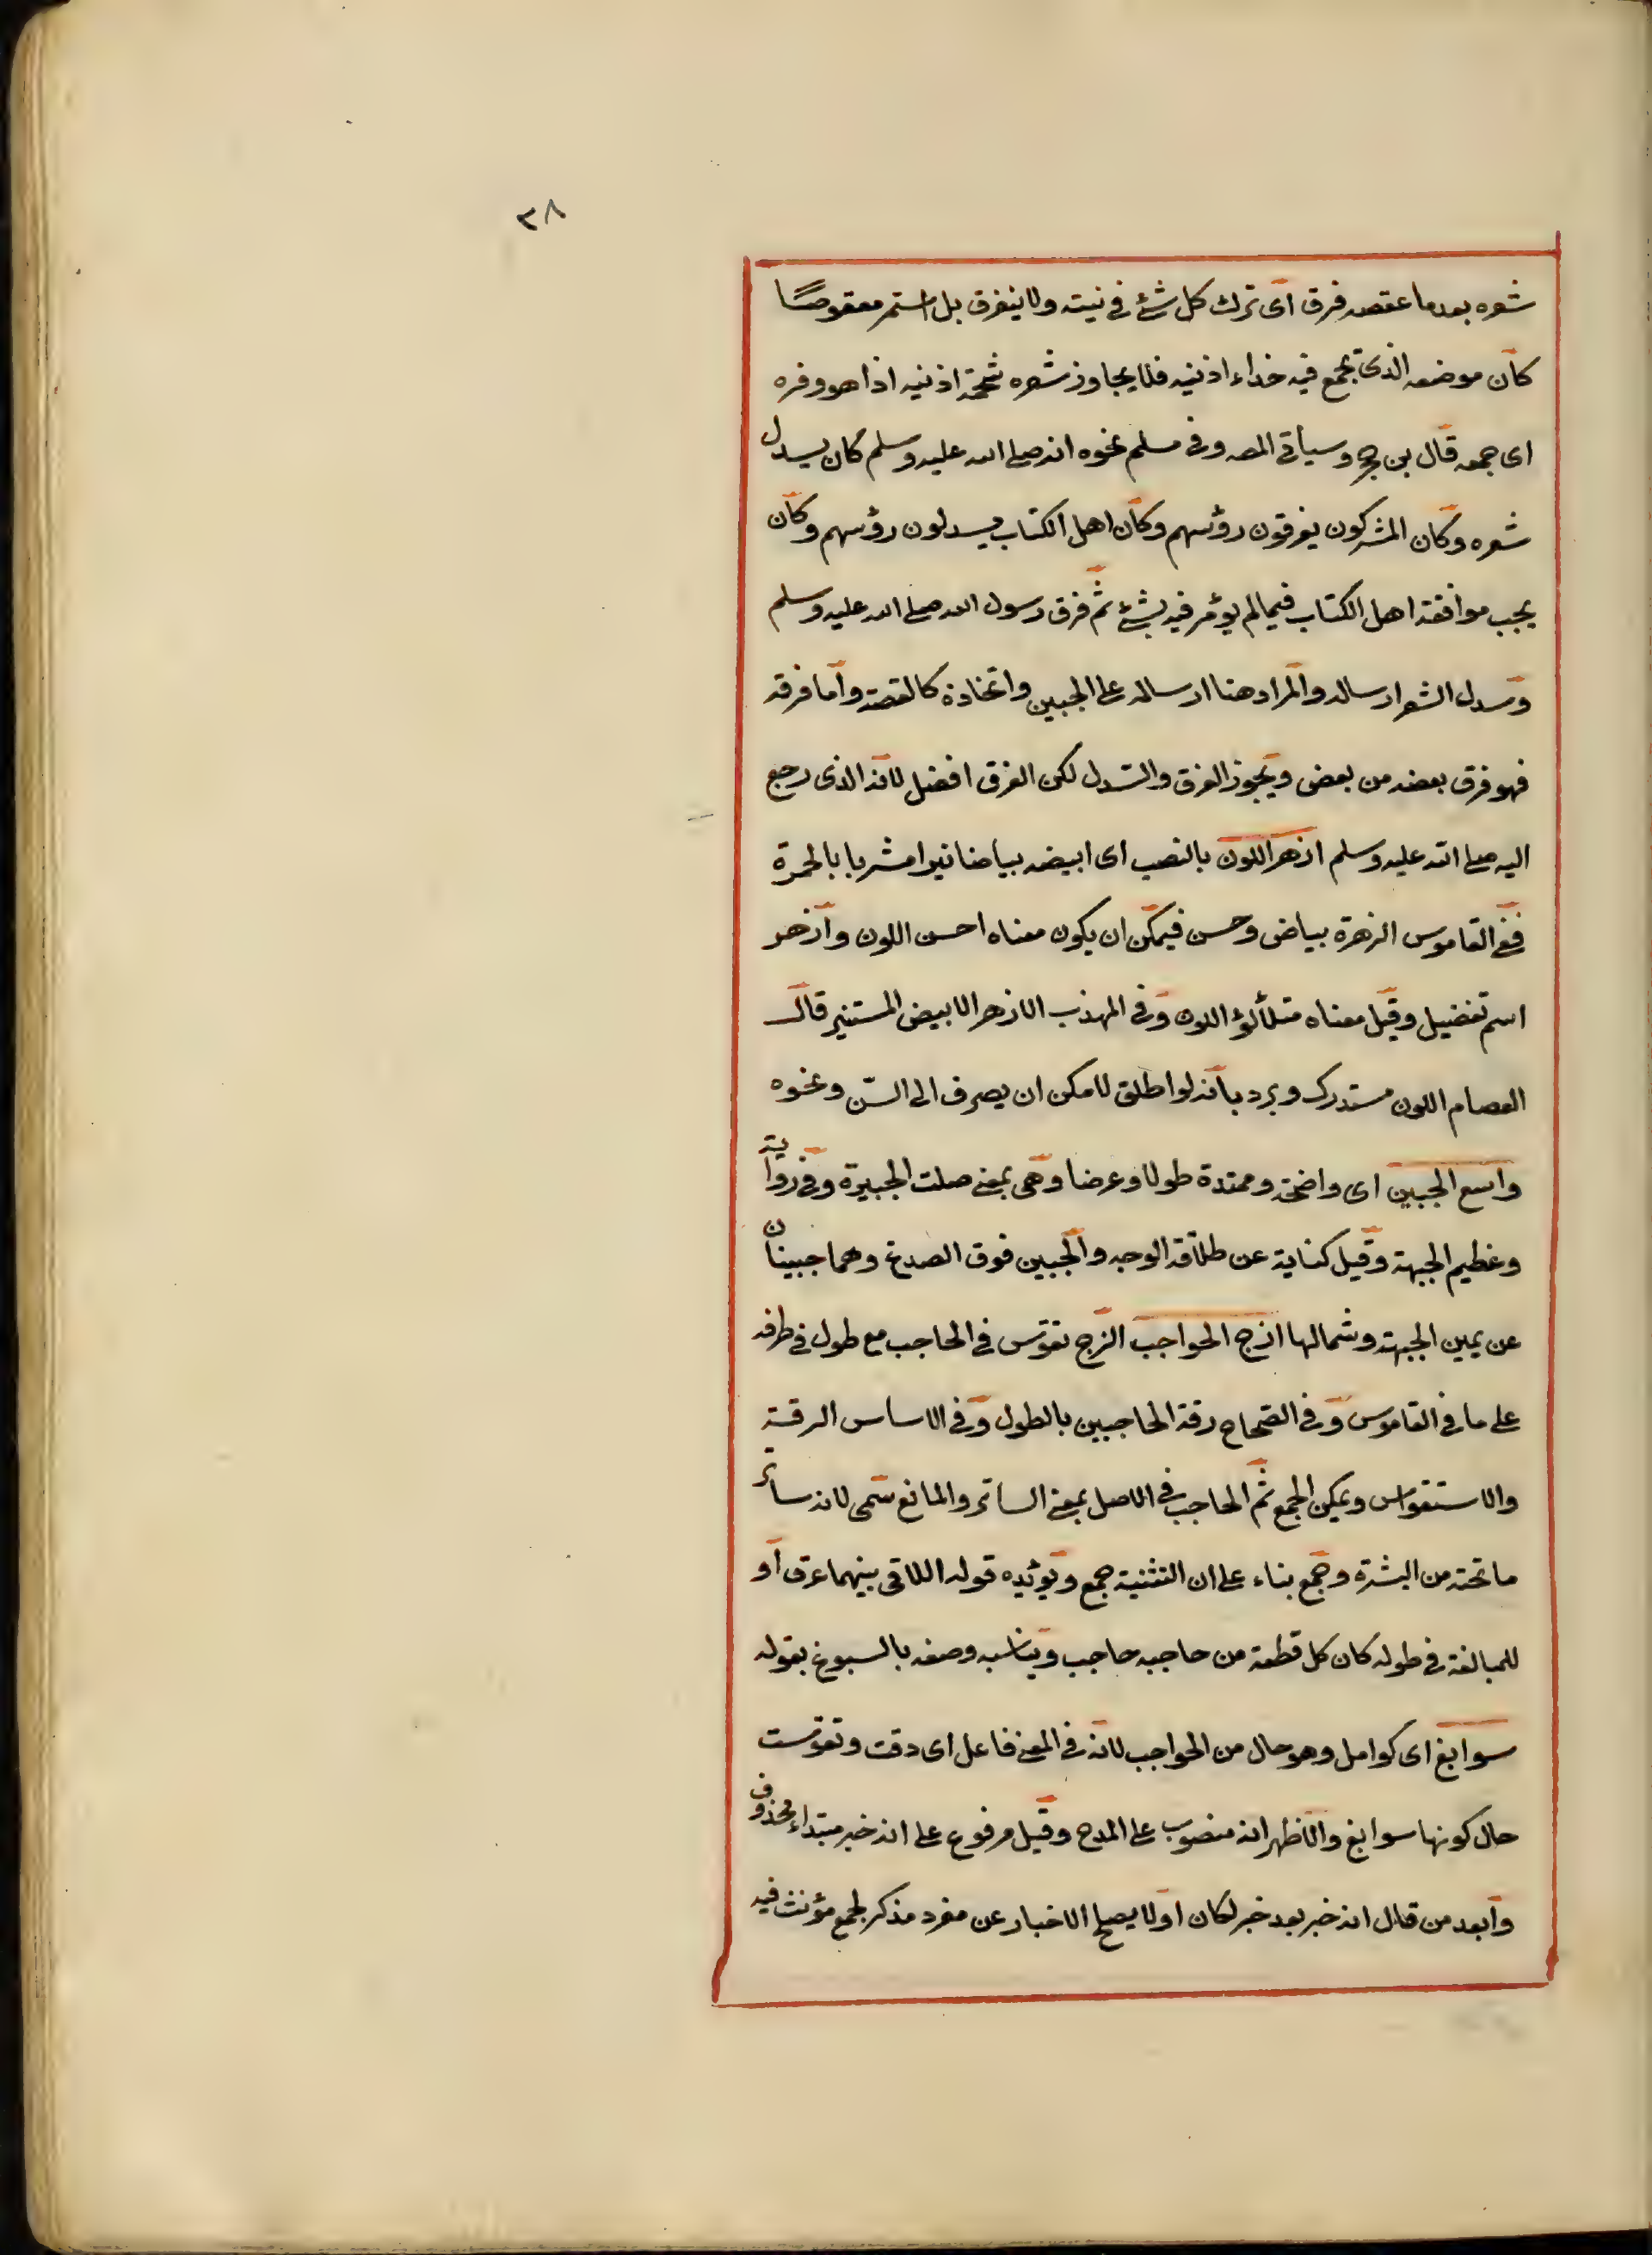 ٣٨
شعره بعدما عقصه فرق اى ترك كل شئ فى نيته ولا ينفرق بل استمر معقوصًا
كان موضعه الذى تجمع فيه حذاء اذنيه فلا يجاوز شعره شحمة اذنيه اذا هو وفره
اى جمعه قال بن حجر وسيأتى المصه وفى مسلم نحوه انه صلى الله عليه وسلم كان يسدل
شعره وكان المشركون يفرقون رؤسهم وكان اهل الكتاب يسدلون رؤسهم وكان
يحب موافقة اهل الكتاب فيما لم يؤمر فيه بشئ ثم فرق رسول الله صلى الله عليه وسلم
وسدل الشعر ارساله والمراد هنا ارساله على الجبين واتخاذه كالقصة واما فرقه
فهو فرق بعضه من بعض ويجوز الفرق والسدل لكن الفرق افضل لانه الذى رجع
اليه صلى الله عليه وسلم ازهر اللون بالنصب اى ابيضه بياضا نيرا مشربا بالحمرة
ففى القاموس الزهرة بياض وحسن فيمكن ان يكون معناه احسن اللون وازهر
اسم تفضيل وقيل معناه متلألؤ اللون وفى المهذب الازهر الابيض المستنير قال
العصام اللون مستدرك ويرد بانه لو اطلق لامكن ان يصرف الى السن ونحوه
واسع الجبين اى واضحة وممتدة طولا وعرضا وهى بمعنى صلت الجبيرة وفى رواية
وعظيم الجبهة وقيل كناية عن طلاقة الوجه والجبين فوق الصدغ وهما جبينان
عن يمين الجبهة وشمالها ازج الحواجب الزج تقوس فى الحاجب مع طول فى طرفه
على ما فى القاموس وفى الصحاح رقة الحاجبين بالطول وفى الاساس الرقة
والاستقواس ويمكن الجمع ثم الحاجب فى الاصل بمعنى الساتر والمانع سمى لانه ساتر
ما تحته من البشرة وجمع بناء على ان التثنية جمع ويؤيده قوله اللاتى بينهما عرق او
للمبالغة فى طوله كان كل قطعة من حاجبه حاجب ويناسبه وصفه بالسبوغ بقوله
سوابغ اى كوامل وهو حال من الحواجب لانه فى المعنى فاعل اى دقت وتقوست
حال كونها سوابغ والاظهر انه منصوب على المدح وقيل مرفوع على انه خبر مبتداء محذوف
وابعد من قال انه خبر بعد خبر لكان اولا يصح الاخبار عن مفرد مذكر لجمع مؤنث فيه